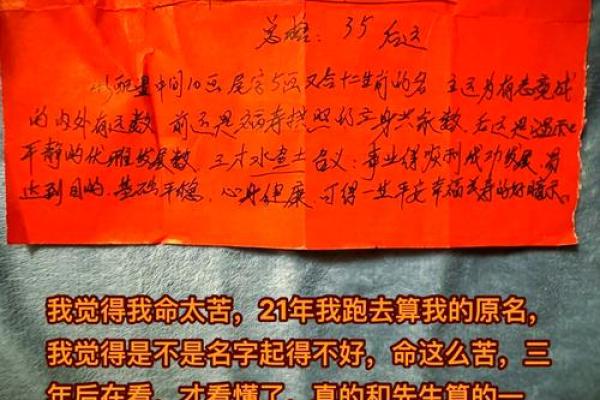 总格：35 后运
配置中间10画 尾字5画 又合十二生肖的名 主运为有志竟成
的内外有运数 前运是名病寿拱照的立身兴家数 后运是温和
平静的优雅发展数 三才水 土 含义：事业得顺利成功发展 易
达到目的 基础平稳 心身健康 可得一生平安幸福长寿的好暗示
我觉得我命太苦，21年我跑去算我的原名，
我觉得是不是名字起得不好，命这么苦，三
年后在看，才看懂了，真的和先生算的一